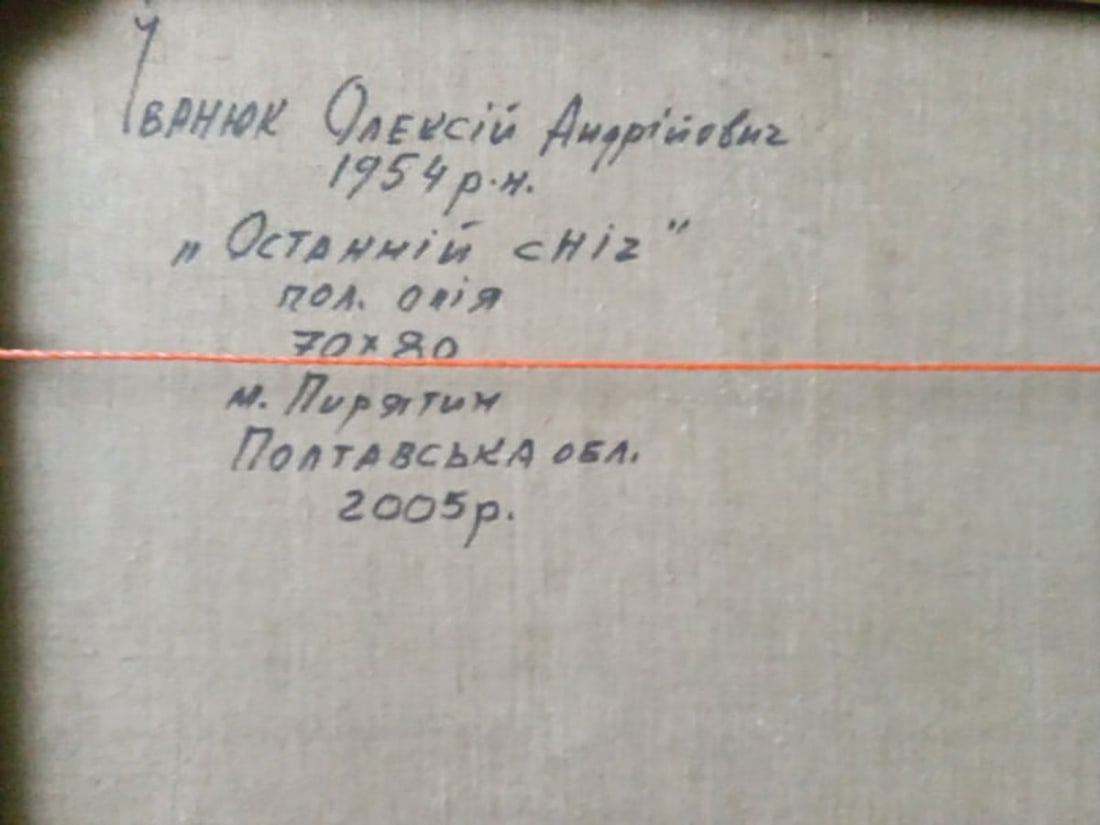 Іванюк Олексій Андрійович
1954 р.н.
„Останній сніг"
пол. олія
70x80
м. Пирятин
Полтавська обл.
2005р.